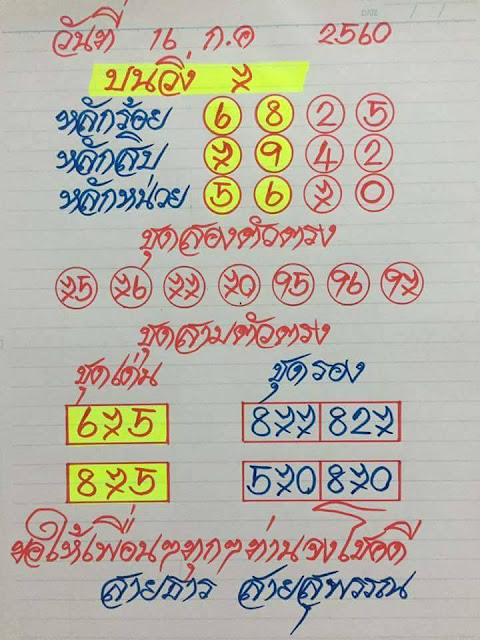 DATE / /
วันที่ 16 ก.ค 2560
บนวิ่ง 7
หลักร้อย 6 8 2 5
หลักสิบ 7 9 4 2
หลักหน่วย 5 6 7 0
ชุดสองตัวตรง
75 76 77 70 95 96 97
ชุดสามตัวตรง
ชุดเด่น ชุดรอง
675 877 827
875 570 870
ขอให้เพื่อนๆทุกๆท่านจงโชคดี
สายธาร สายสุพรรณ